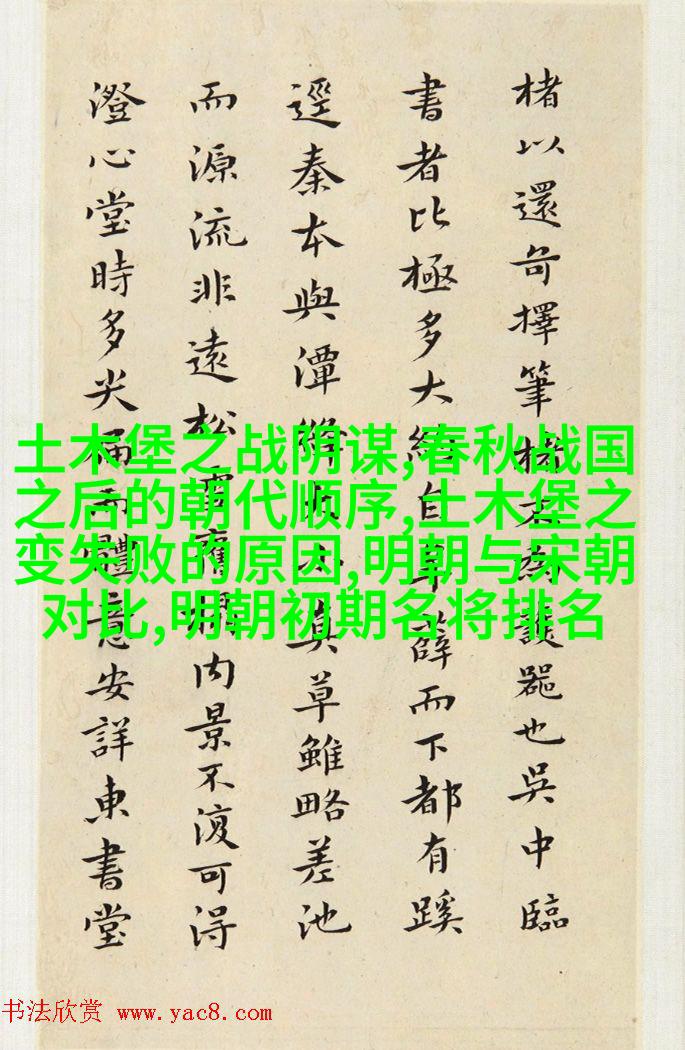 楮以還奇擇筆為護器也吳中臨
書者比極多大自薛而下都有蹊
逕秦本與潭真草雖略差池
而源流非遠松雪舊內景不復可得
澄心堂時多尖而體意安詳東書堂
土木堡之战阴谋,春秋战国
之后的朝代顺序,土木堡之
变失败的原因,明朝与宋朝
对比,明朝初期名将排名
书法欣赏 www.yac8.com